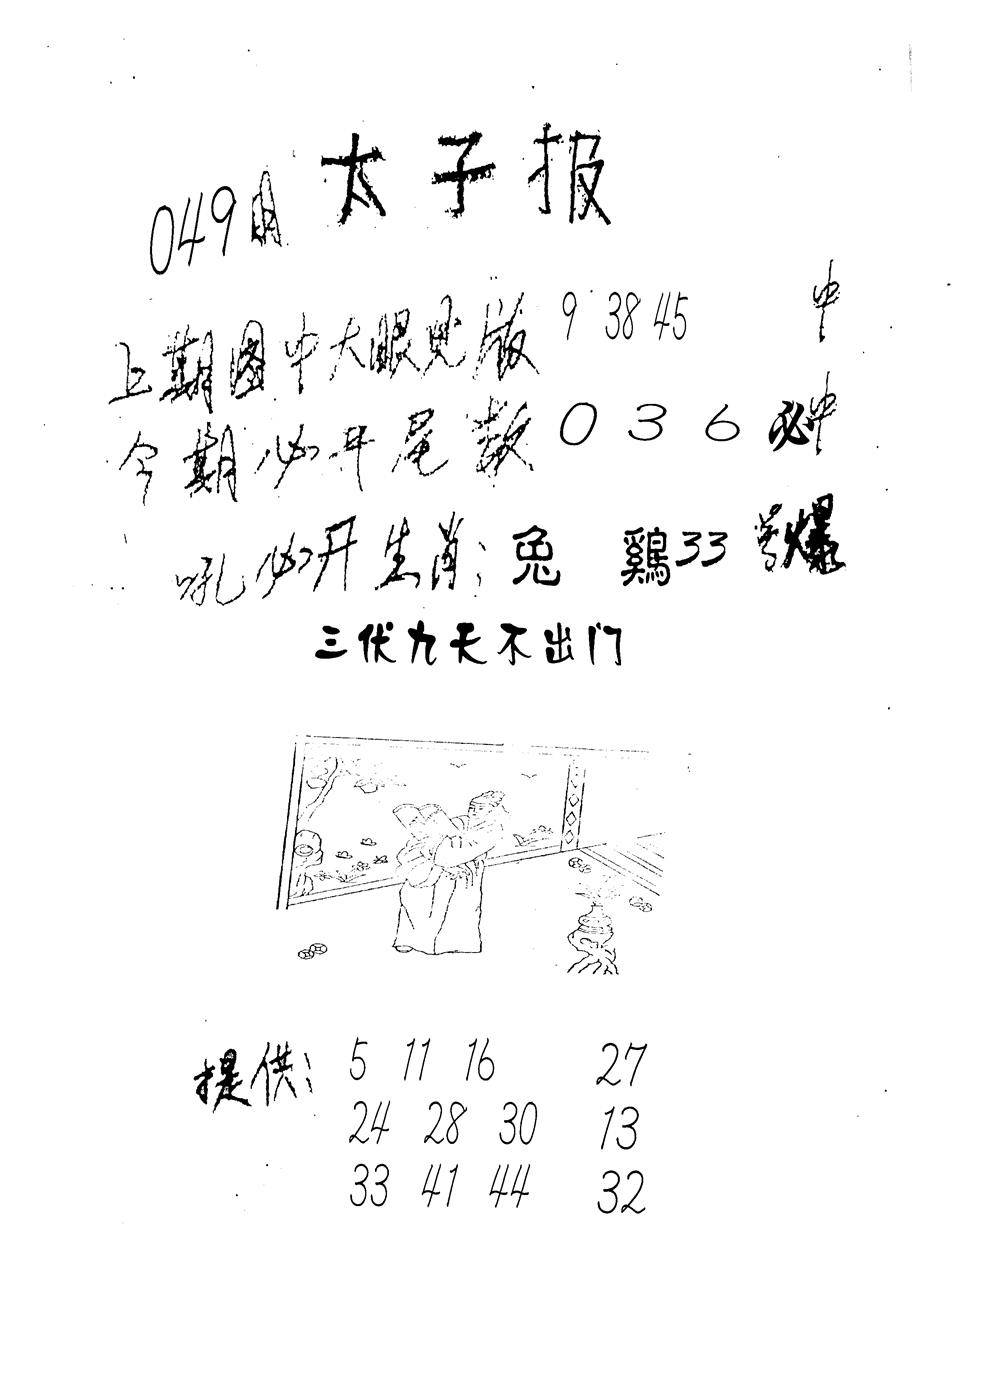 太子报
049期
上期图中大眼见版 9 38 45 中
今期必开尾数 0 3 6 必中
吼必开生肖：兔 鷄 33 号爆
三伏九天不出门
提供： 5 11 16 27
24 28 30 13
33 41 44 32